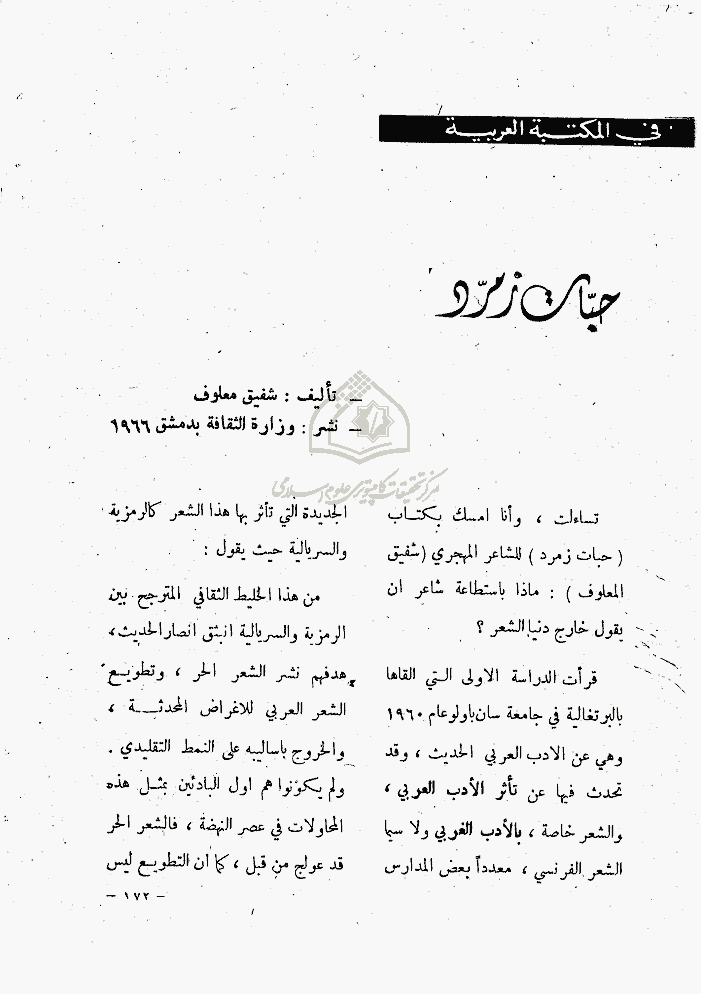 في المكتبة العربية
حبّات زمرّد
— تأليف : شفيق معلوف
— نشر : وزارة الثقافة بدمشق ١٩٦٦
مركز تحقيقات كامپيوتری علوم اسلامی
تساءلت ، وأنا امسك بكتاب
( حبات زمرد ) للشاعر المهجري (شفيق
المعلوف ) : ماذا باستطاعة شاعر ان
يقول خارج دنيا الشعر ؟
قرأت الدراسة الاولى التي القاها
بالبرتغالية في جامعة سان باولو عام ١٩٦٠
وهي عن الادب العربي الحديث ، وقد
تحدث فيها عن تأثر الأدب العربي ،
والشعر خاصة ، بالأدب الغربي ولا سيما
الشعر الفرنسي ، معدداً بعض المدارس
الجديدة التي تأثر بها هذا الشعر كالرمزية
والسريالية حيث يقول :
من هذا الخليط الثقافي المترجح بين
الرمزية والسريالية انبثق انصار الحديث ،
هدفهم نشر الشعر الحر ، وتطويع
الشعر العربي للاغراض المحدثة ،
والخروج باساليبه على النمط التقليدي .
ولم يكونوا هم اول البادئين بمثل هذه
المحاولات في عصر النهضة ، فالشعر الحر
قد عولج من قبل ، كما أن التطويع ليس
— ١٧٢ —